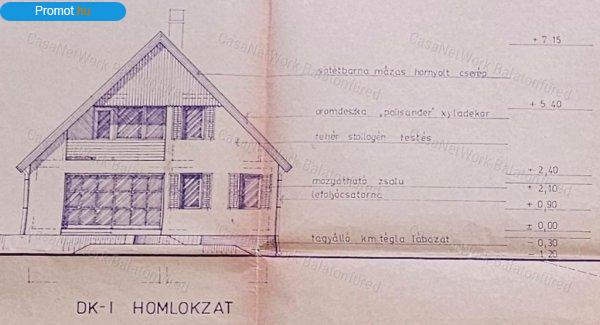 Promot.hu
CasaNetWork Balatonfüred
+ 7.15
sötétbarna mázas hornyolt cserép
+ 5.40
oromdeszka „paliszander” xyladekor
fehér stollogén festés
+ 2,40
mozgatható zsalu
+ 2,10
lefolyócsatorna
+ 0,90
± 0,00
fagyálló km. tégla lábazat
- 0,30
- 1.20
DK-I HOMLOKZAT